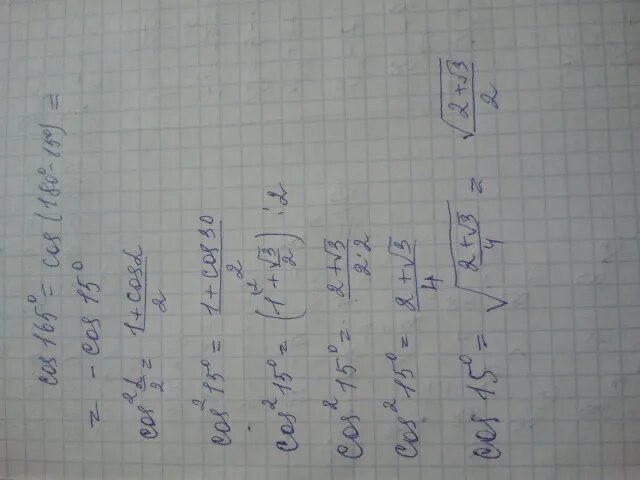 cos 165° = cos (180° - 15°) =
= - cos 15°
cos² α/2 = (1 + cos α)/2
cos² 15° = (1 + cos 30)/2
cos² 15° = (1 + √3/2) : 2
cos² 15° = (2 + √3)/(2·2)
cos² 15° = (2 + √3)/4
cos 15° = √((2 + √3)/4) = √(2 + √3)/2